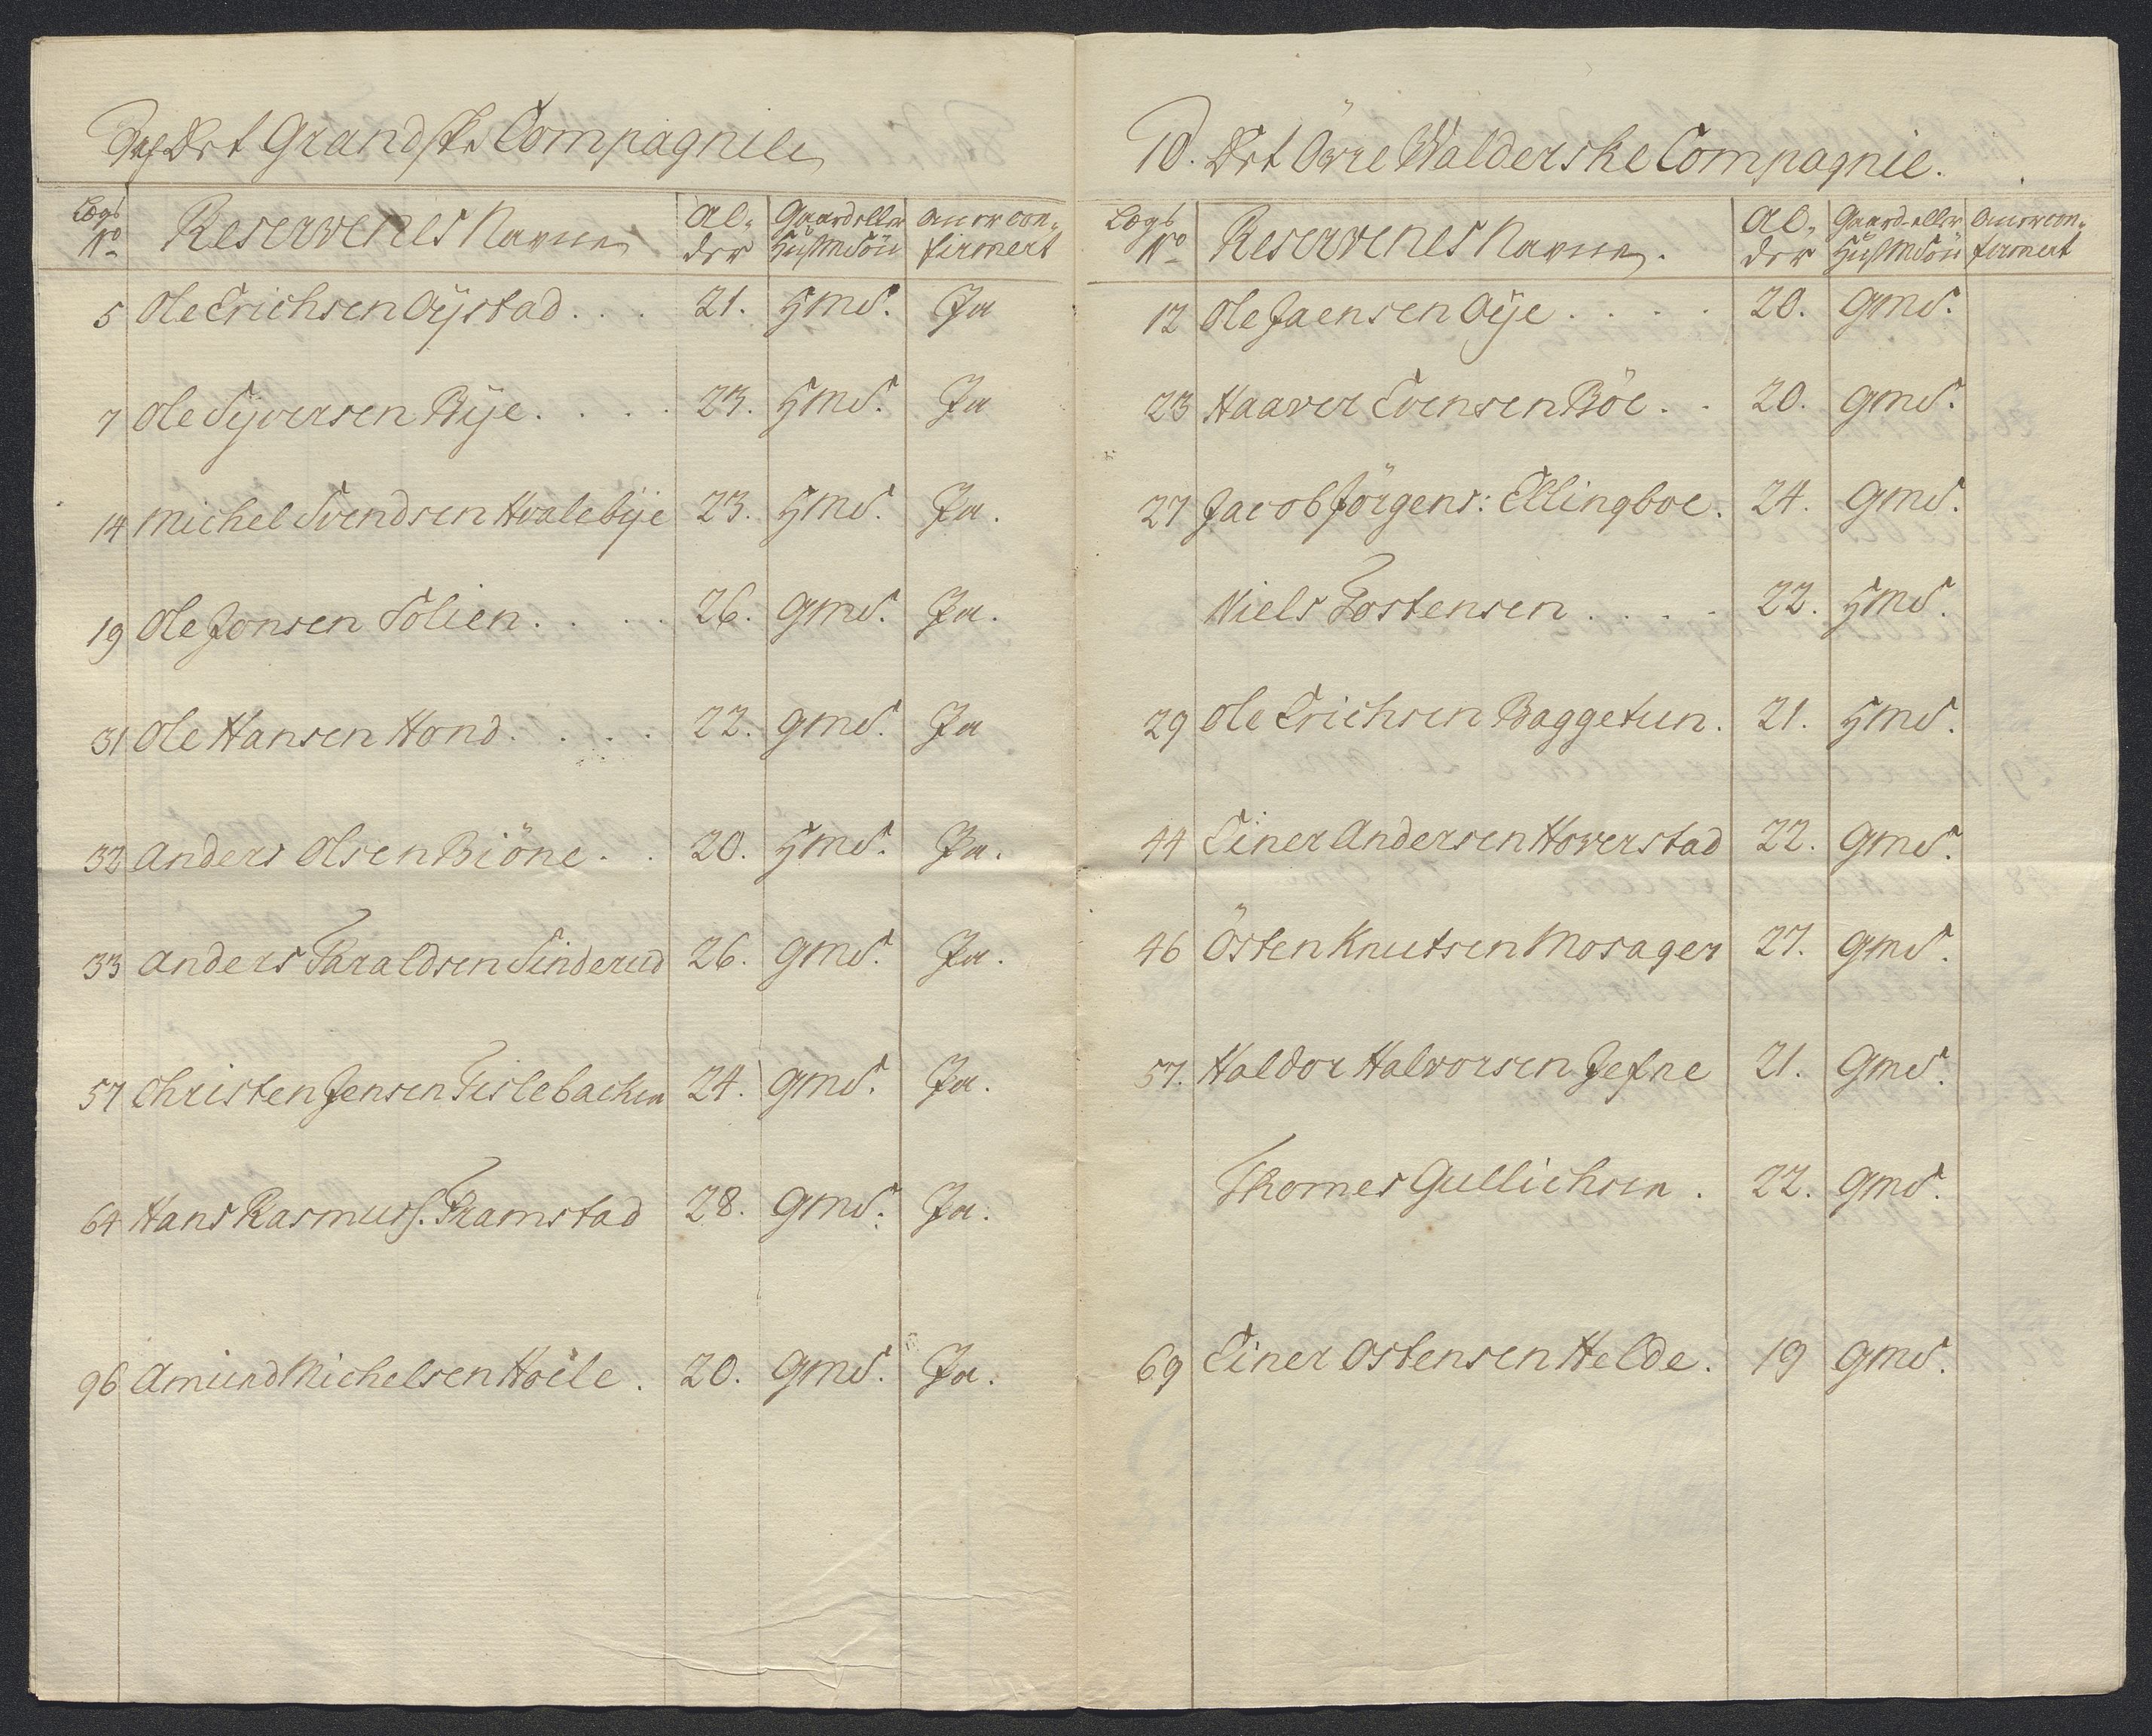 Det Grandske Compagnie
Lægs No Reservenes Navne Al- der Gaard eller Husm Sön An er con- firmert
5 Ole Erichsen Oÿstad . . . 21. HmS. Ja
7 Ole Syversen Bÿe . . . . 23. HmS. Ja
14 Michel Svendsen Hvalebÿe 23. HmS. Ja.
19 Ole Jonsen Solien . . . . 26. GmS. Ja.
31 Ole Hansen Hond . . . . 22. GmS. Ja
32 Anders Olsen Biöne . . 20. HmS. Ja.
33 Anders Taraldsen Sinderud 26. GmS. Ja.
57 Christen Jensen Tislebachen 24. GmS. Ja.
64 Hans Rasmuss. Framstad 28. GmS. Ja.
96 Amund Michelsen Hoële . 20. GmS. Ja.
10. Det Övre Walderske Compagnie.
Lægs No Reservenes Navne. Al- der Gaard-eller HusmSön An er con- firmert
12 Ole Jaensen Oÿe . . . . 20. GmS.
23 Haaver Evensen Böe . . 20. GmS.
27 Jacob Jörgens: Ellingboe. 24. GmS.
Niels Tostensen . . . . 22. HmS.
29 Ole Erichsen Baggetun. 21. HmS.
44 Einer Andersen Hoverstad 22. GmS.
46 Östen Knutsen Mosager 27. GmS.
57. Haldor Halvorsen Jefne 21. GmS.
Thomes Gullichsen . 22. GmS.
69 Einer Ostensen Helde. 19 GmS.